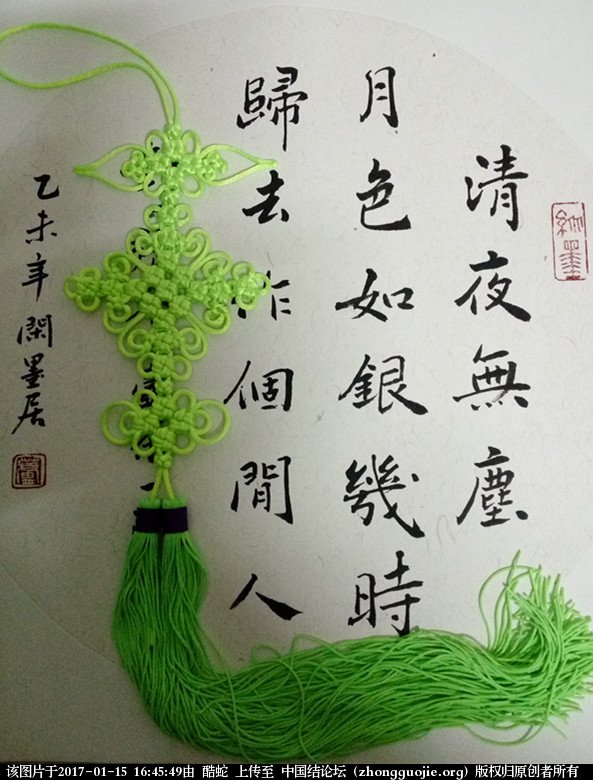 清夜無塵
月色如銀幾時
歸去作個閒人
乙未年閑墨居
该图片于2017-01-15 16:45:49由 酷蛇 上传至 中国结论坛 (zhongguojie.org) 版权归原创者所有